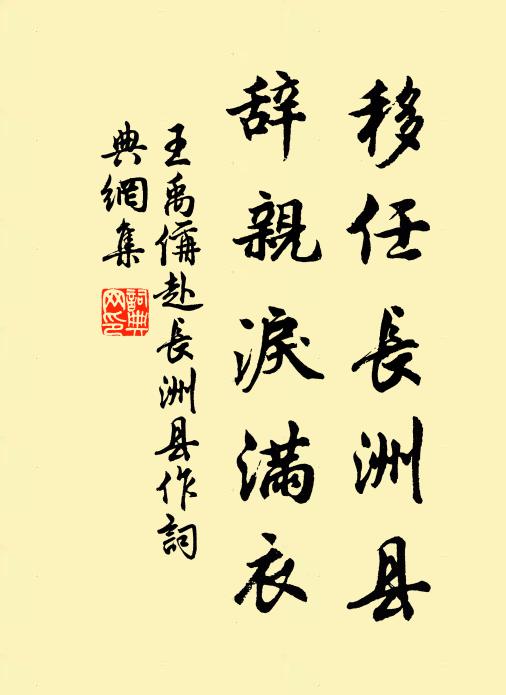 移任長洲县
辞親淚滿衣
王禹偁赴長洲县作詞
典網集
詞典網印